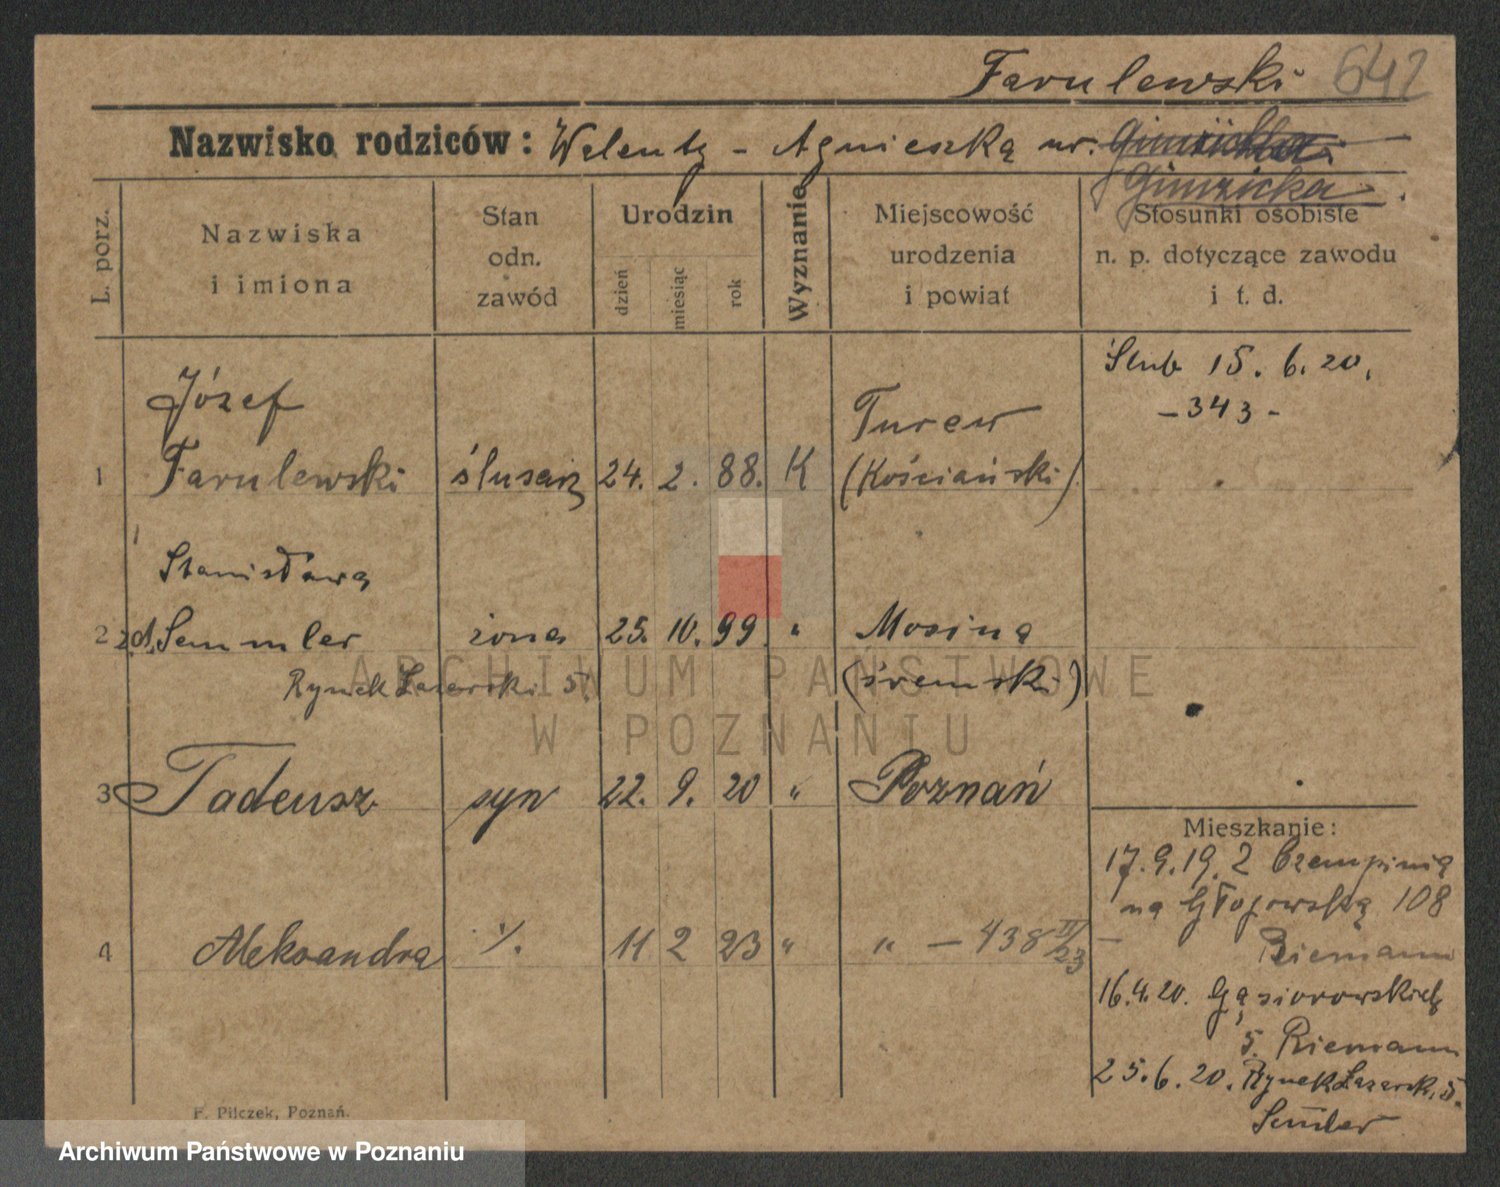 Farulewski 642
Nazwisko rodziców: Walenty - Agnieszka ur.
Gimzicka.
L. porz.
Nazwiska
i imiona
Stan
odn.
zawód
Urodzin
dzień
miesiąc
rok
Wyznanie
Miejscowość
urodzenia
i powiat
Stosunki osobiste
n. p. dotyczące zawodu
i t. d.
Ślub 15. 6. 20.
- 343 -
Józef Turew
1 Farulewski ślusarz 24. 2. 88. K (Kościański)
Stanisława
2 z d. Semmler żona 25. 10. 99 " Mosina
Rynek Łazarski 5. (śremski)
3 Tadeusz syn 22. 9. 20 " Poznań
4 Aleksandra ·/. 11 2 23 " " - 438 II/23
Mieszkanie:
17. 9. 19. z Czempinia
na Głogowską 108
Riemann
16. 4. 20. Gąsiorowskich
5. Riemann
25. 6. 20. Rynek Łazarski 5.
Semler
F. Pilczek, Poznań.
ARCHIWUM PAŃSTWOWE
W POZNANIU
Archiwum Państwowe w Poznaniu